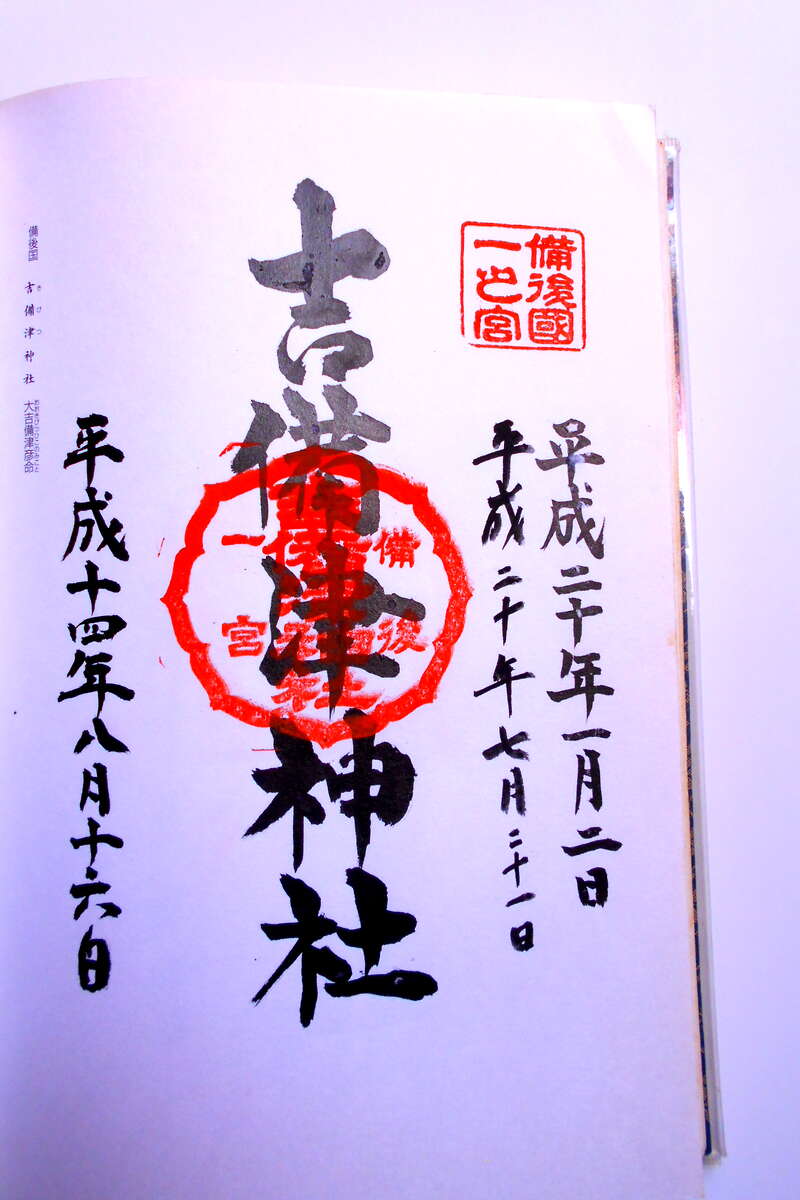 備後國
一之宮
平成二十年一月二日
平成二十年七月二十一日
吉備津神社
備後
一宮
平成十四年八月十六日
備後国 吉備津神社 大吉備津彦命